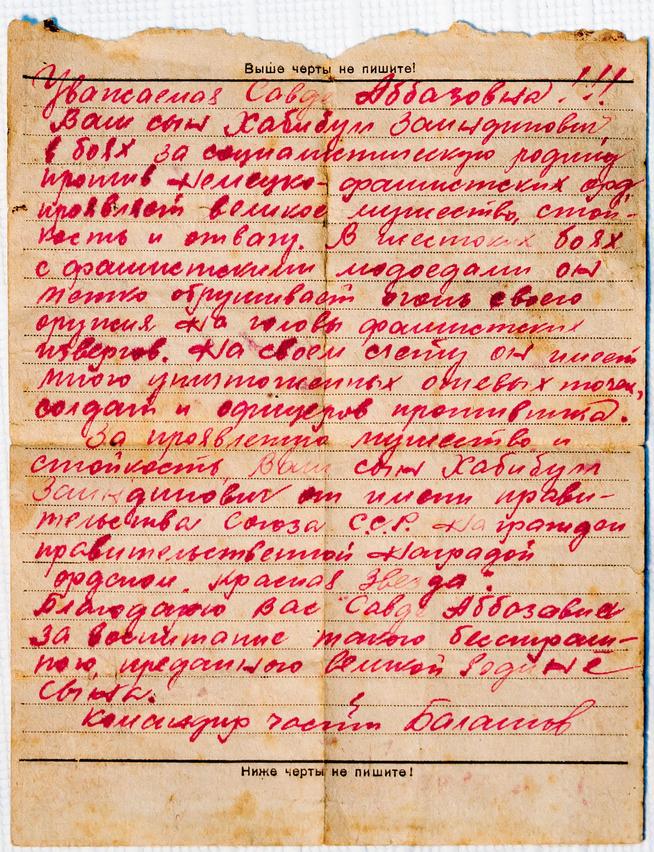 Выше черты не пишите!
Уважаемая Савда Аббазовна!!!
Ваш сын Хабибул Заиндинович,
в боях за социалистическую родину
против немецко-фашистских орд,
проявляет великое мужество, стой-
кость и отвагу. В жестоких боях
с фашистскими людоедами он
метко обрушивает огонь своего
оружия на головы фашистских
извергов. На своем счету он имеет
много уничтоженных огневых точек,
солдат и офицеров противника.
За проявленно мужество и
стойкость Ваш сын Хабибул
Заиндинович от имени прави-
тельства Союза С.С.Р. награжден
правительственной наградой
орденом "Красная Звезда".
Благодарю Вас Савда Аббазавна
За воспитание такого бесстраш-
ного, преданного великой Родине
сына.
Командир части Балашов
Ниже черты не пишите!